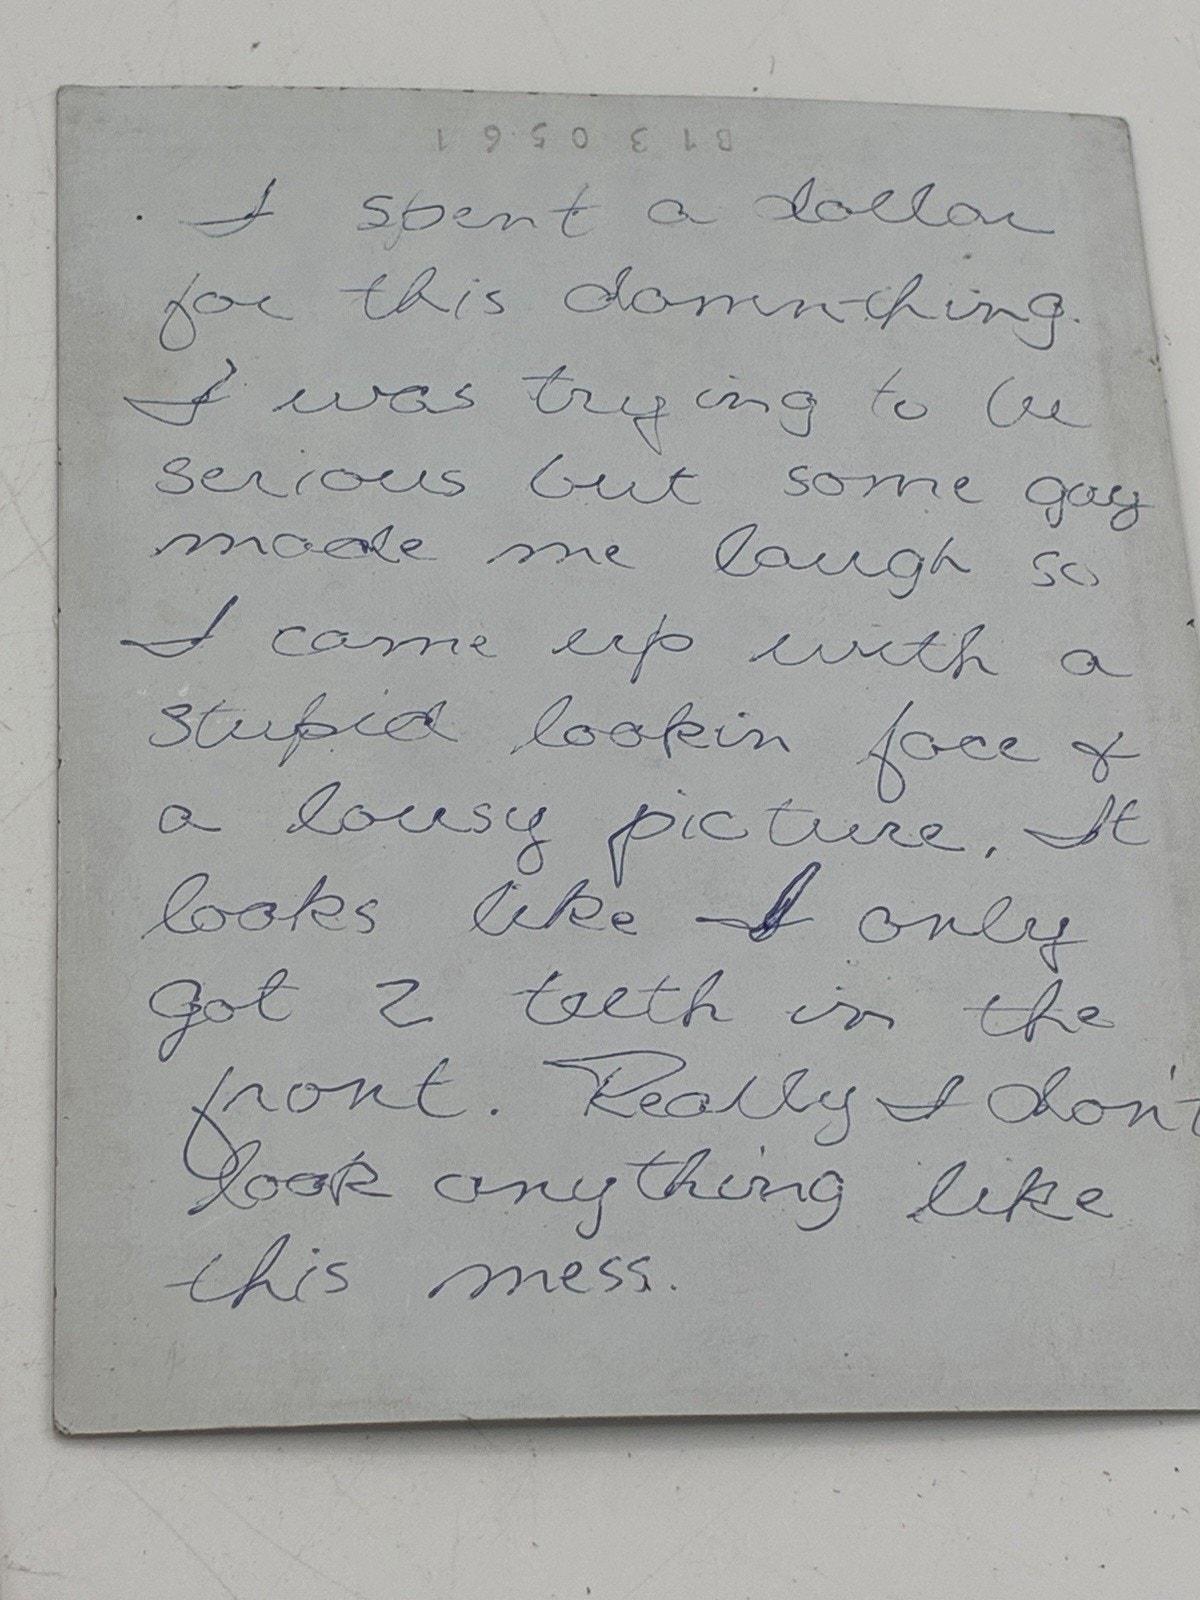 B1305561
I spent a dollar
for this damn thing.
I was trying to be
serious but some guy
made me laugh so
I came up with a
stupid lookin face &
a lousy picture. It
looks like I only
got 2 teeth in the
front. Really I don't
look anything like
this mess.